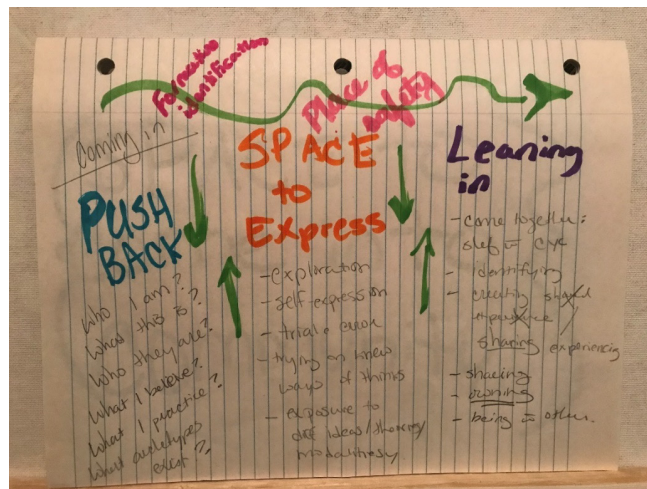 Formation
identification
Place of
safety
Coming in
PUSH
BACK
Who I am?
What this is?
Who they are?
What I believe?
What I practice?
What archetypes
exist?
SPACE
to
Express
- exploration
- self-expression
- trial & error
- trying on knew
ways of things
- exposure to
diff ideas/theory/
modalities
Leaning
in
- come together:
- identifying
- creating shared
experience /
sharing experiencing
- sharing
- owning
- being = other.